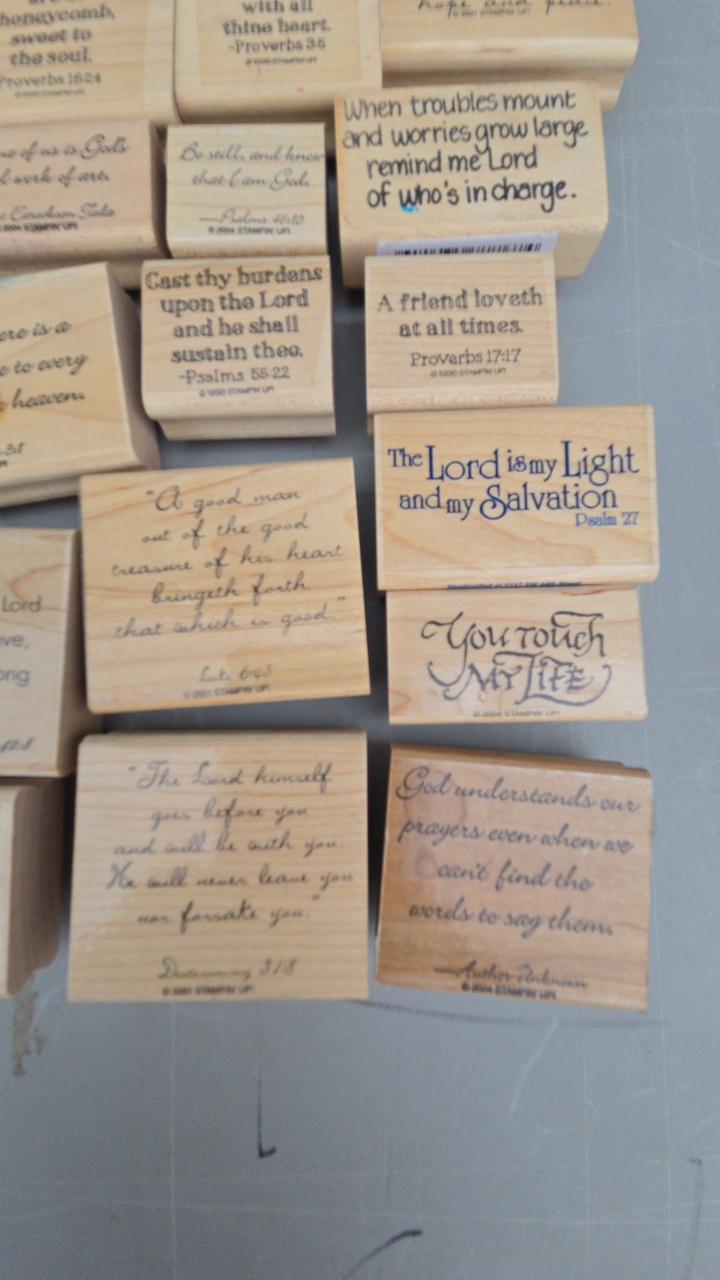 honeycomb,
sweet to
the soul.
Proverbs 16:24
with all
thine heart.
-Proverbs 3:5
hope and peace.
© 2001 STAMPIN' UP!
of us is God's
work of art.
© 2004 STAMPIN' UP!
Be still, and know
that I am God.
—Psalms 46:10
© 2004 STAMPIN' UP!
When troubles mount
and worries grow large
remind me Lord
of who's in charge.
ere is a
e to every
heaven.
3:1
Cast thy burdens
upon the Lord
and he shall
sustain thee.
-Psalms 55:22
© 1990 STAMPIN' UP!
A friend loveth
at all times.
Proverbs 17:17
© 1990 STAMPIN' UP!
The Lord is my Light
and my Salvation
Psalm 27
"A good man
out of the good
treasure of his heart
bringeth forth
that which is good."
Luke 6:45
© 2001 STAMPIN' UP!
You touch
My Life
© 2004 STAMPIN' UP!
Lord
ve,
ong
12:8
"The Lord himself
goes before you
and will be with you.
He will never leave you
nor forsake you."
Deuteronomy 31:8
© 2001 STAMPIN' UP!
God understands our
prayers even when we
can't find the
words to say them.
—Author Unknown
© 2004 STAMPIN' UP!